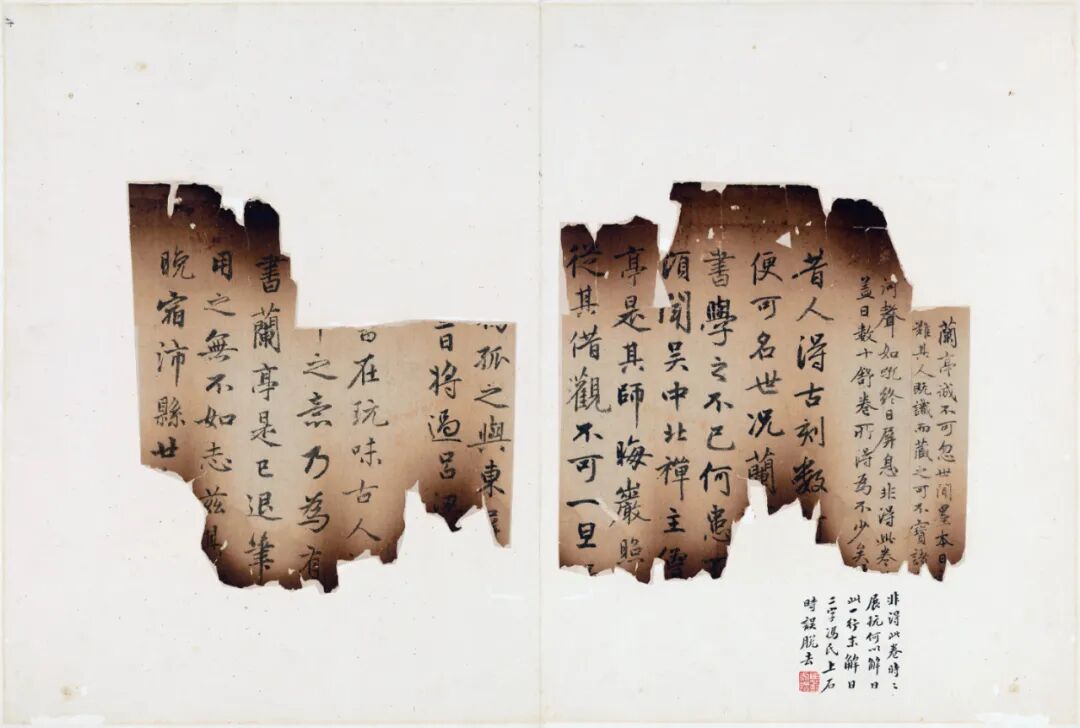 蘭亭誠不可忽世間墨本日
難其人既識而藏之可不寶諸
河聲如吼終日屏息非得此卷
蓋日數十舒卷所得為不少矣
昔人得古刻數
便可名世況蘭
書學之不已何患
頃聞吳中北禪主僧
亭是其師晦巖照
從其借觀不可一旦
孤之與東
日將過呂
在玩味古人
之意乃為有
書蘭亭是已退筆
用之無不如志茲
晚宿沛縣廿
非得此卷時〻
展玩何以解日
此一行末解日
二字馮氏上石
時誤脫去